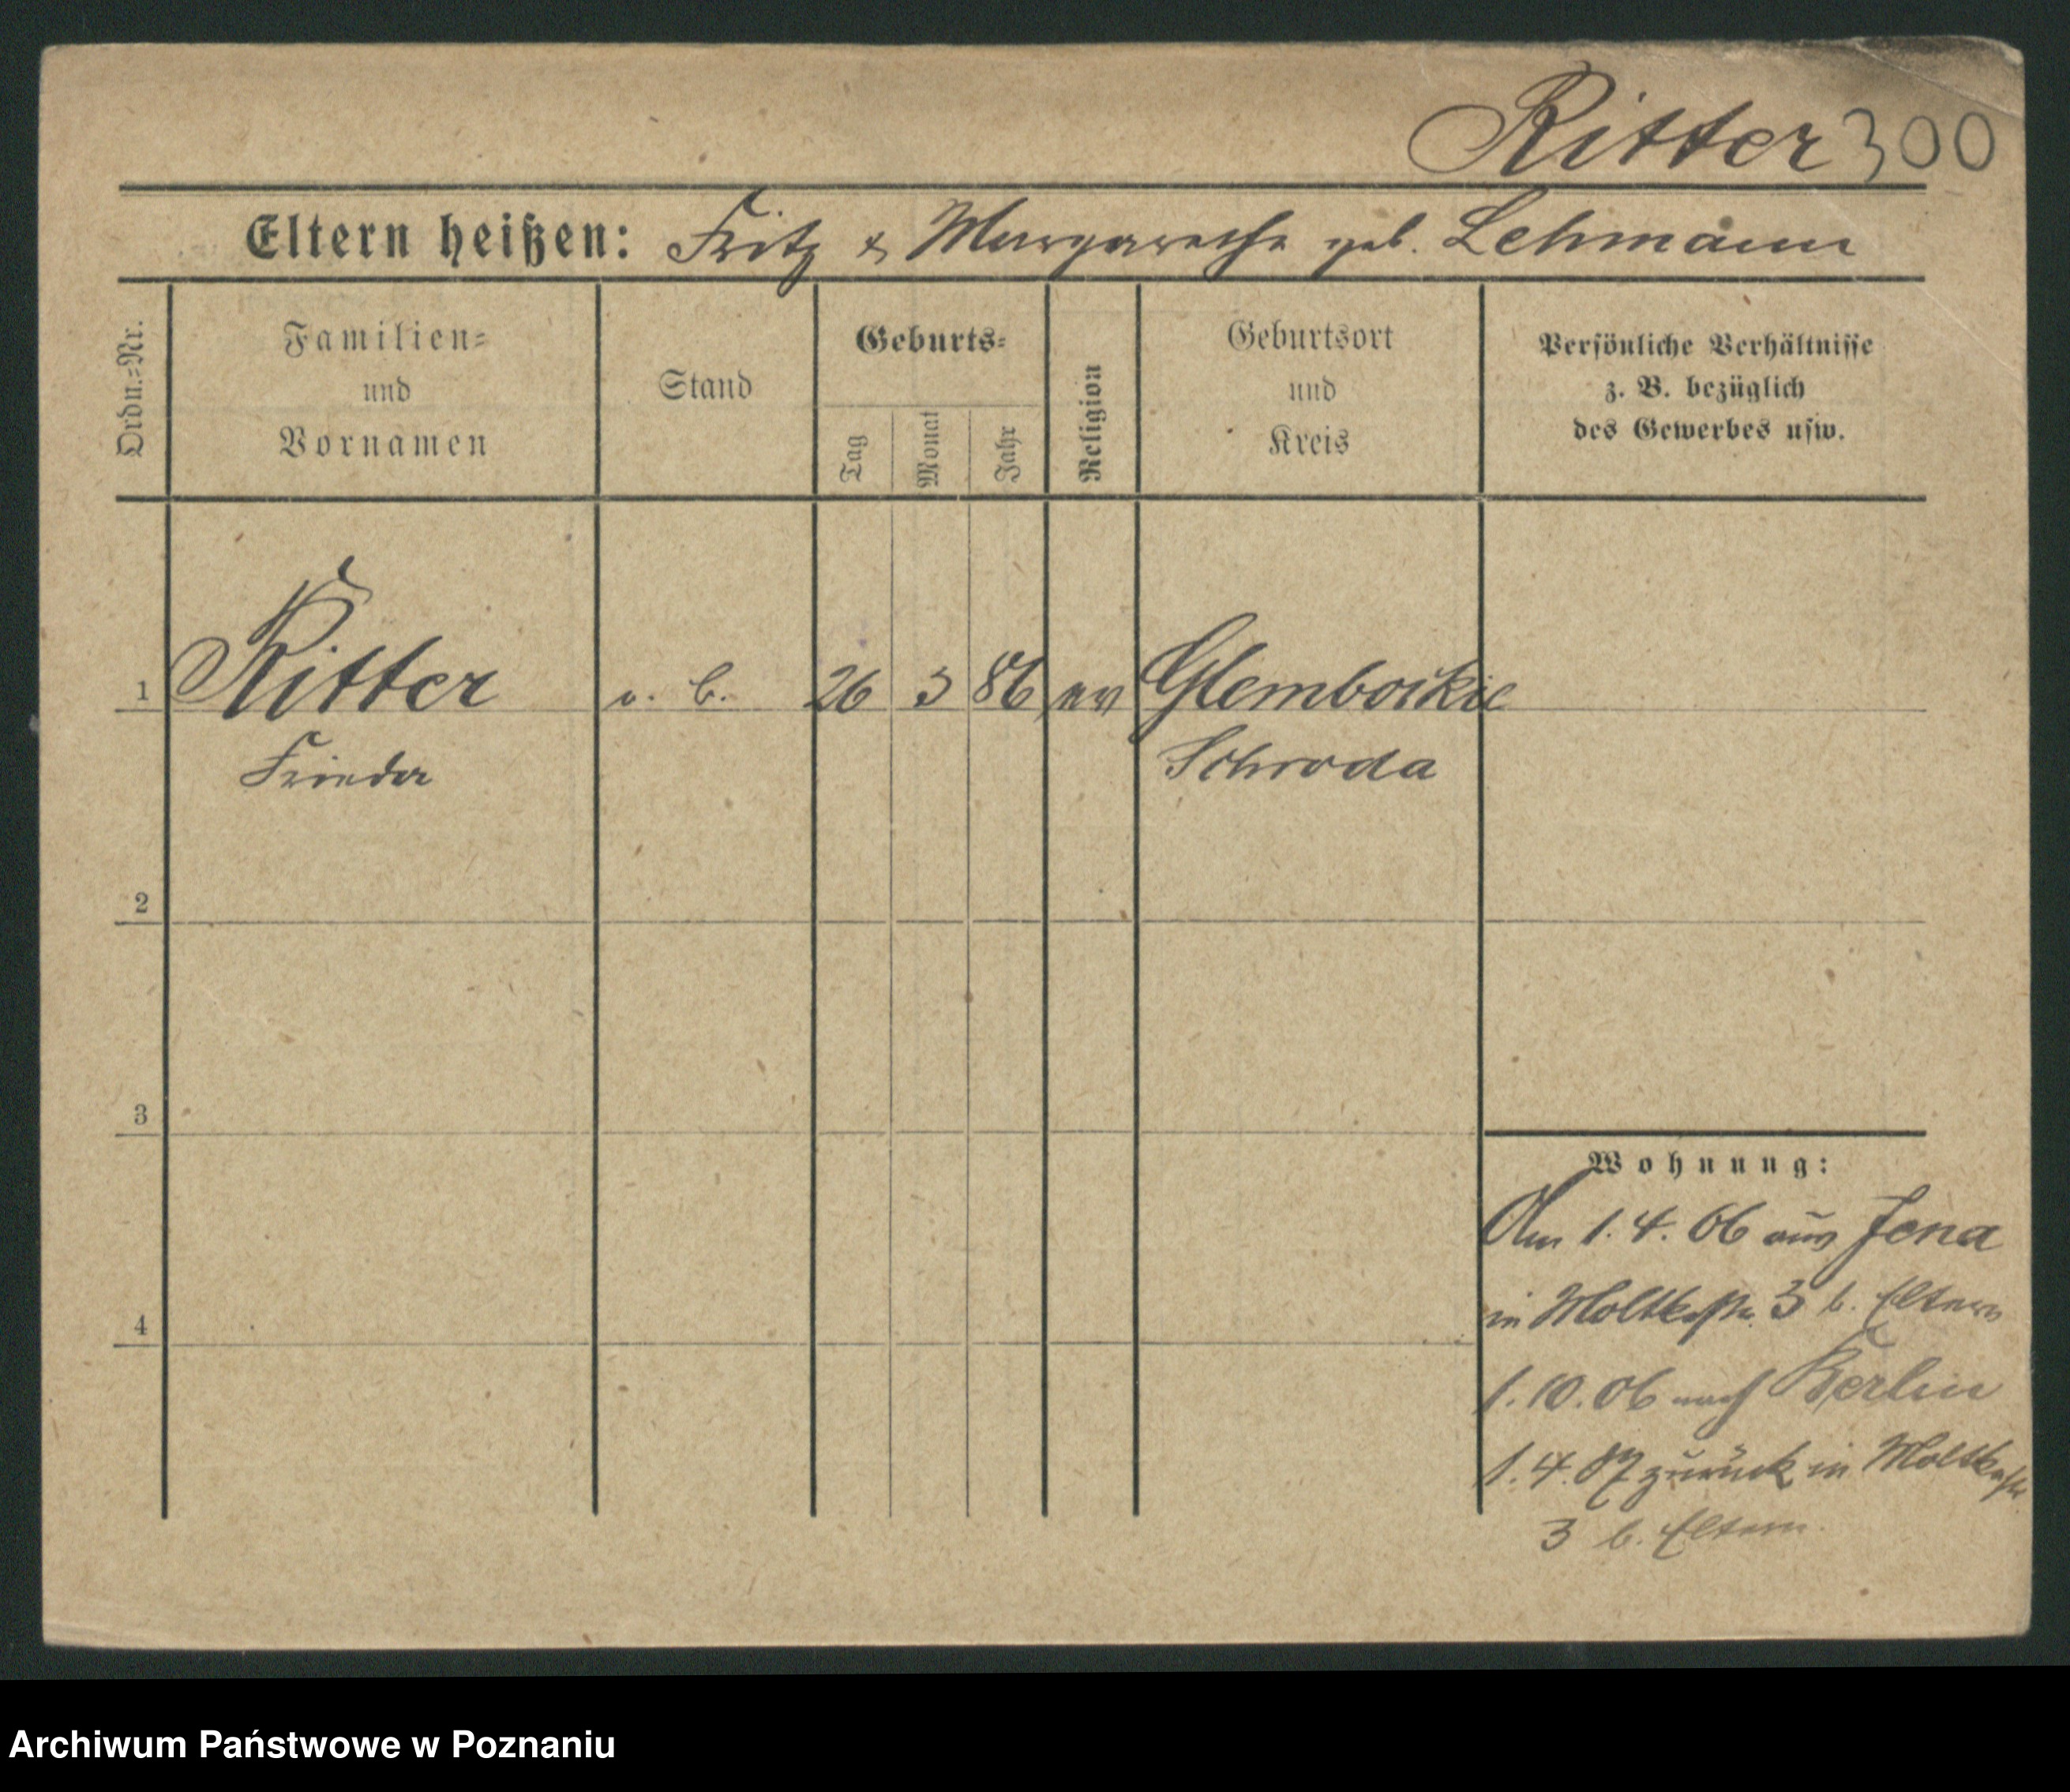 Ritter 300
Eltern heißen: Fritz & Margarethe geb. Lehmann
Ordn.=Nr.
Familien=
und
Vornamen
Stand
Geburts=
Tag
Monat
Jahr
Religion
Geburtsort
und
Kreis
Persönliche Verhältnisse
z. B. bezüglich
des Gewerbes usw.
1 Ritter o. b. 26 3 86 ev Glemboikie
Frieda Schroda
2
3
4
Wohnung:
Am 1.4.06 aus Jena
in Moltkestr. 3 b. Eltern
1.10.06 nach Berlin
1.4.07 zurück in Moltkestr
3 b. Eltern.
Archiwum Państwowe w Poznaniu